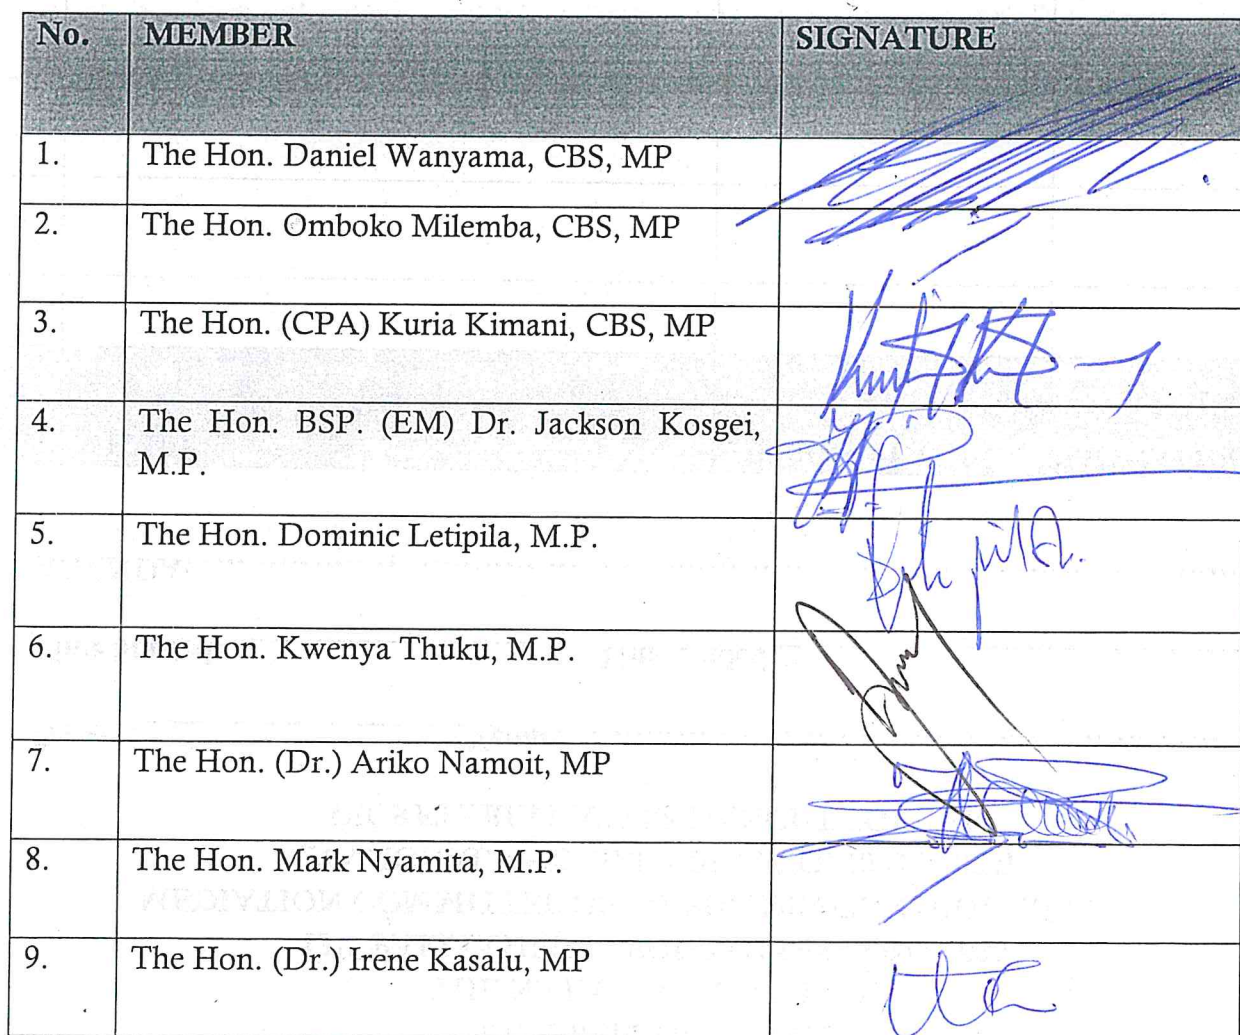 No. MEMBER SIGNATURE
1. The Hon. Daniel Wanyama, CBS, MP
2. The Hon. Omboko Milemba, CBS, MP
3. The Hon. (CPA) Kuria Kimani, CBS, MP
4. The Hon. BSP. (EM) Dr. Jackson Kosgei,
M.P.
5. The Hon. Dominic Letipila, M.P.
6. The Hon. Kwenya Thuku, M.P.
7. The Hon. (Dr.) Ariko Namoit, MP
8. The Hon. Mark Nyamita, M.P.
9. The Hon. (Dr.) Irene Kasalu, MP